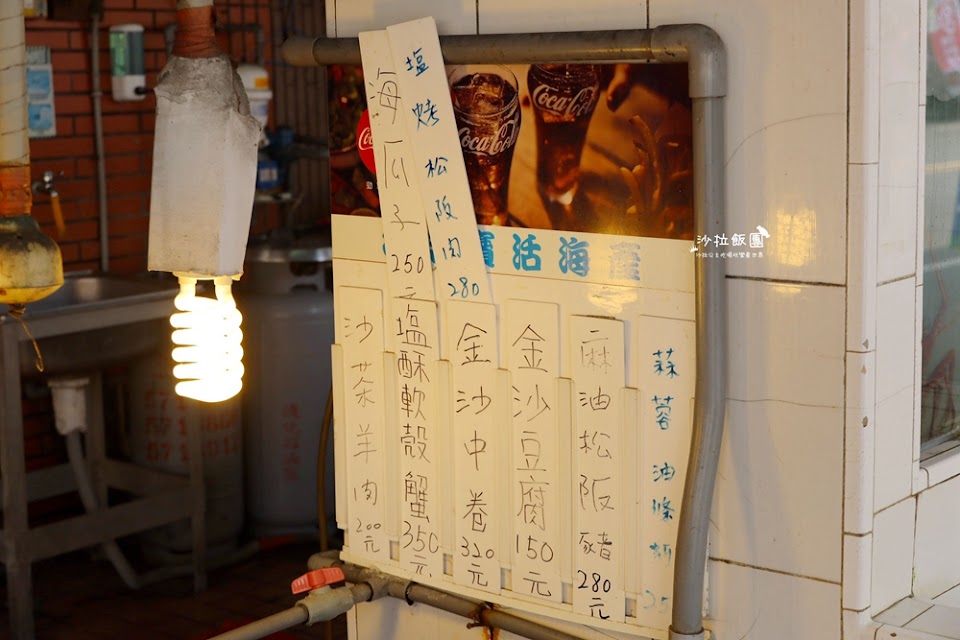 海瓜子250元
塩烤松阪肉280
寶活海產
沙茶羊肉200元
塩酥軟殼蟹350元
金沙中卷320元
金沙豆腐150元
麻油松阪豬280元
蒜蓉油條蚵25
Coca-Cola
Coca-Cola
沙拉飯團